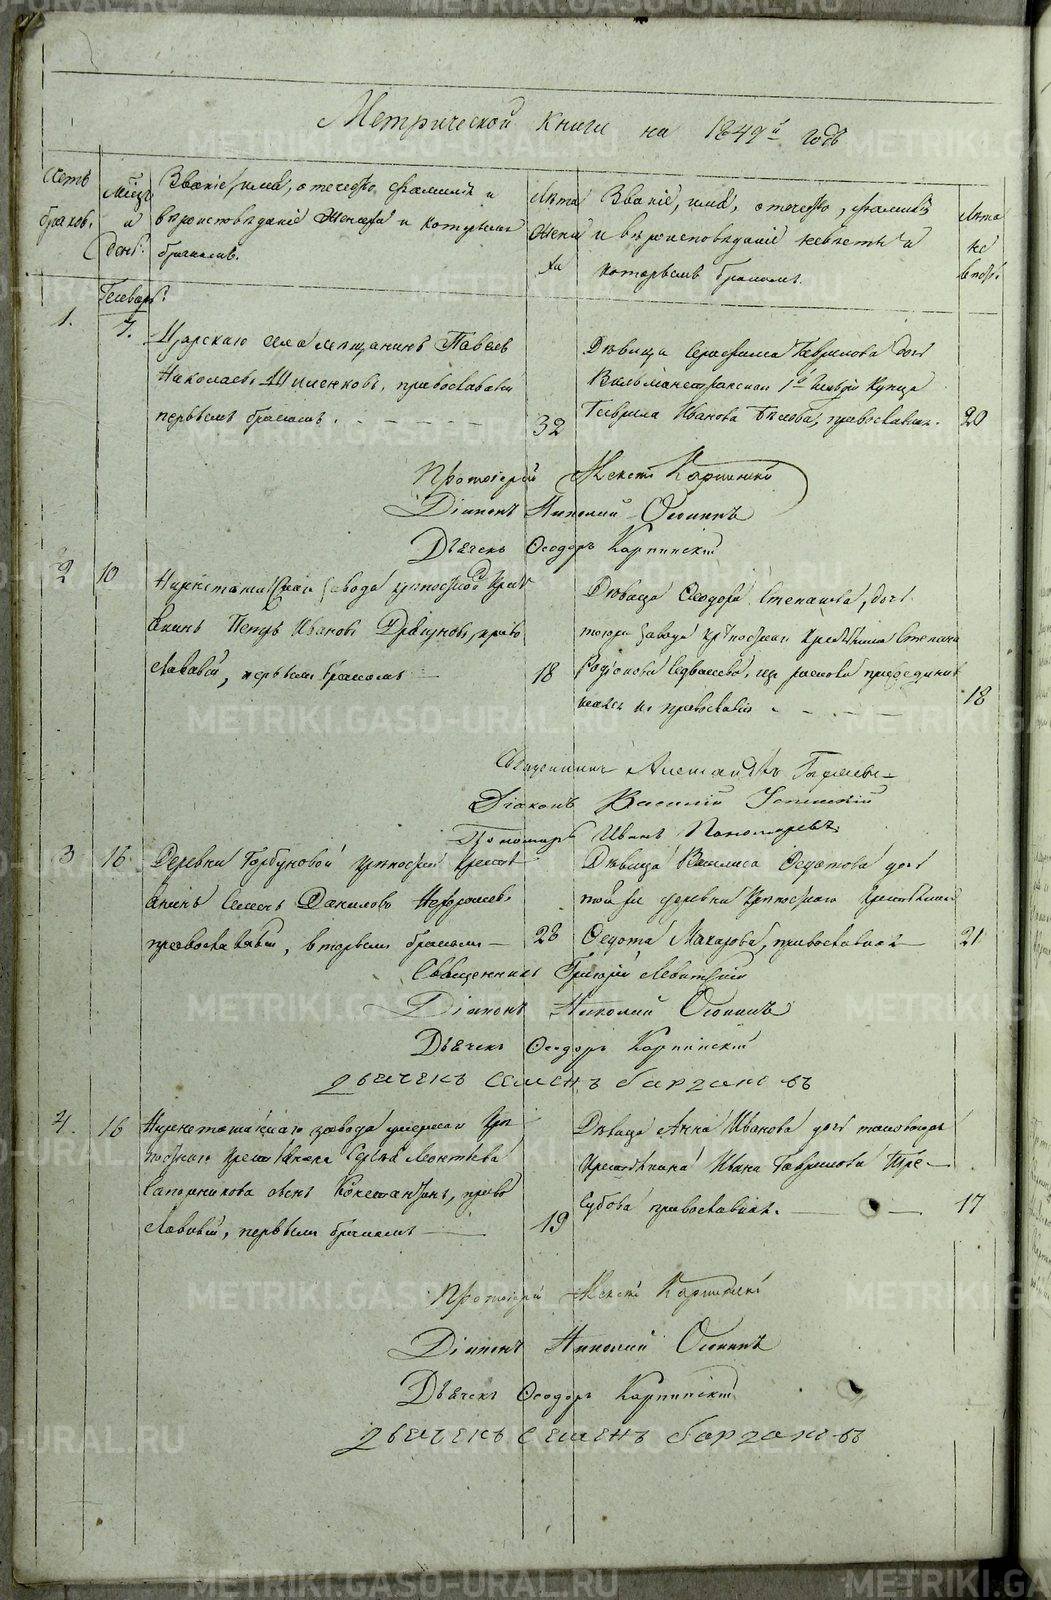 Метрической книги на 1849й годъ
Счетъ
браковъ.
Мѣсц
и
день.
Званіе, имя, отечество, фамилія и
вѣроисповѣданіе жениха и которымъ
бракомъ.
Лѣта
жени
ха
Званіе, имя, отечество, фамилія
и вѣроисповѣданіе невесты и
которымъ бракомъ.
Лѣта
не
весты.
Генварь.
1. 7.
Царскаго села мещанинъ Павелъ
Николаевъ православный
первымъ бракомъ. 32
Дѣвица Серафима Гаврилова дочь
1й гильдіи купца
Гаврила Иванова православнаго. 20
Протоіерей Карпинскій
Діаконъ Николай Осининъ
Дьячекъ Ѳеодоръ Карпинскій
2 10
Нижнетагильскаго завода крѣпостной крестья
нинъ Петръ Ивановъ Драгуновъ, право
славный, первымъ бракомъ 18
Дѣвица Ѳеодора Степанова, дочь
тогоже завода крѣпостнаго крестьянина Степана
изъ раскола присоединив
шаяся къ православію 18
Священникъ Александръ
Діаконъ Василій Успенскій
Пономарь Иванъ Пономаревъ
3 16
Деревни Горбуновой крѣпостной крестья
нинъ Семенъ Даниловъ
православный, вторымъ бракомъ 28
Дѣвица Василиса Ѳедотова дочь
той же деревни крѣпостнаго крестьянина
Ѳедота Макарова, православнаго 21
Священникъ Григорій Левитскій
Діаконъ Николай Осининъ
Дьячекъ Ѳеодоръ Карпинскій
дьечекъ Семенъ
4. 16
Нижнетагильскаго завода умершаго крѣ
постнаго крестьянина Сергѣя Леонтьева
Сапожникова сынъ Константинъ, право
славный, первымъ бракомъ 19
Дѣвица Анна Иванова дочь тогоже завода
крестьянина Ивана Гаврилова Тре-
губова православнаго. 17
Протоіерей Карпинскій
Діаконъ Николай Осининъ
Дьячекъ Ѳеодоръ Карпинскій
дьечекъ Семенъ
METRIKI.GASO-URAL.RU